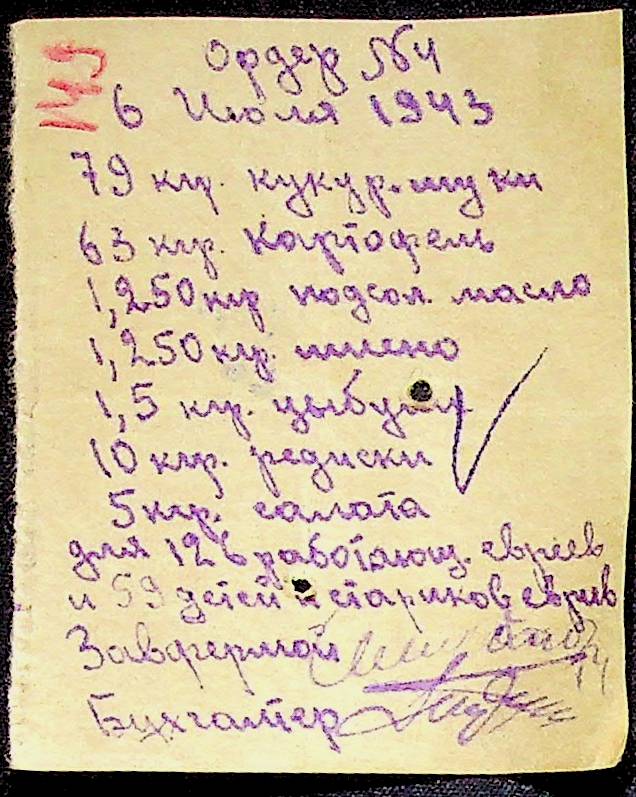 149
Ордер №4
6 Июля 1943
79 кгр. кукур. муки
63 кгр. картофель
1,250 кгр подсол. масло
1,250 кгр. пшено
1,5 кгр. цыбули
10 кгр. редиски
5 кгр. салата
для 126 работающ. евреев
и 59 детей и стариков евреев
Завфермой
Бухгалтер